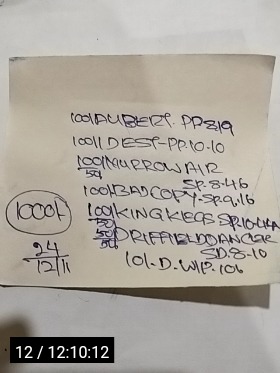 100/AUBERT. PP.8.19
100/1 DEST-PP.10-10
100/MURROW AIR
50 SP. 8-46
100/BAD COPY-SP.9.16
100/KING KLEGS SP.10-44A
50
50/DRIFFIELD DANCER
50 SD.8-10
10/-D.WIP. 106
1000/-
24
12/11
12 / 12:10:12